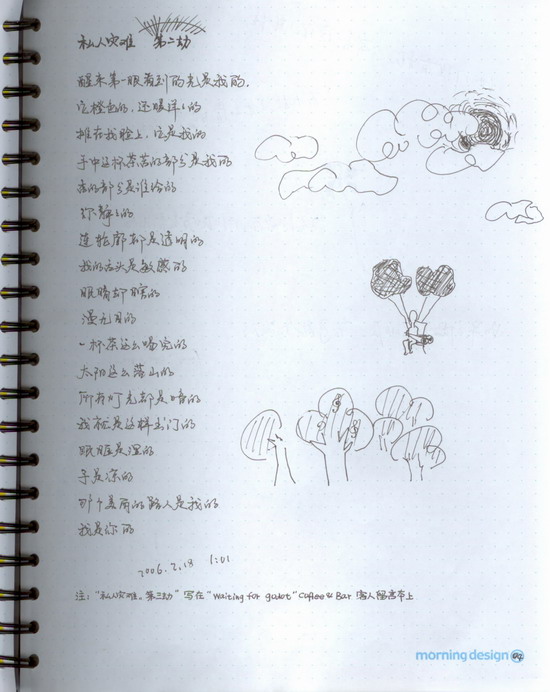 私人灾难 第二劫
醒来第一眼看到的光是我的.
它橙色的,还暖洋洋的
摊在我脸上,它是我的
手中这杯茶苦的部分是我的
甜的部分是谁给的
你静静的
连轮廓都是透明的
我的舌头是敏感的
眼睛却瞎的
漫无目的
一杯茶这么喝完的
太阳这么落山的
所有灯光都是暗的
我就是这样出门的
眼眶是湿的
手是凉的
那个美丽的路人是我的
我是你的
2006.2.18 1:01
注:"私人灾难。第三劫" 写在 "Waiting for godot" Coffee & Bar 客人留言本上
morning design